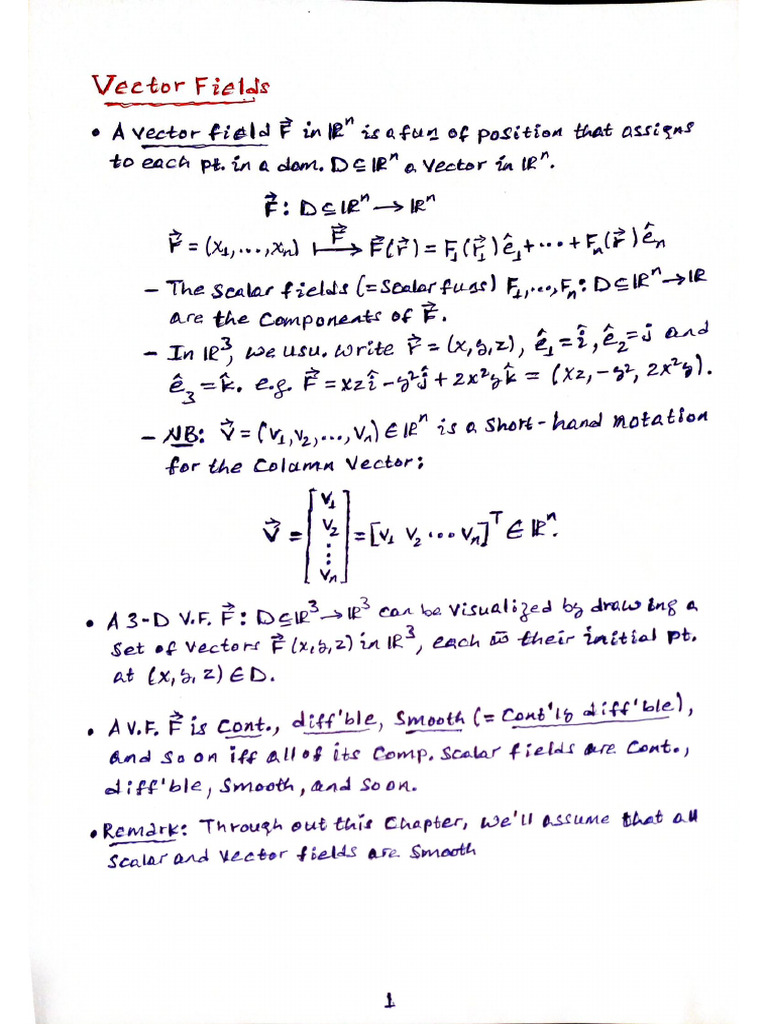 Vector Fields
• A vector field F⃗ in ℝⁿ is a fun of position that assigns
to each pt. in a dom. D ⊆ ℝⁿ a vector in ℝⁿ.
F⃗ : D ⊆ ℝⁿ → ℝⁿ
r⃗ = (x₁, ..., xₙ) ⟼^F⃗ F⃗(r⃗) = F₁(r⃗)ê₁ + ··· + Fₙ(r⃗)êₙ
– The scalar fields (= scalar funs) F₁, ..., Fₙ : D ⊆ ℝⁿ → ℝ
are the components of F⃗.
– In ℝ³, we usu. write r⃗ = (x, y, z), ê₁ = î, ê₂ = ĵ and
ê₃ = k̂. e.g. F⃗ = xz î – y² ĵ + 2x²y k̂ = (xz, –y², 2x²y).
– NB: v⃗ = (v₁, v₂, ..., vₙ) ∈ ℝⁿ is a short-hand notation
for the column vector:
v⃗ = [v₁ v₂ ⋮ vₙ] = [v₁ v₂ ··· vₙ]ᵀ ∈ ℝⁿ.
• A 3-D V.F. F⃗ : D ⊆ ℝ³ → ℝ³ can be visualized by drawing a
set of vectors F⃗(x, y, z) in ℝ³, each w̅ their initial pt.
at (x, y, z) ∈ D.
• A V.F. F⃗ is cont., diff'ble, smooth (= cont'ly diff'ble),
and so on iff all of its comp. scalar fields are cont.,
diff'ble, smooth, and so on.
• Remark: Through out this chapter, we'll assume that all
scalar and vector fields are smooth
1